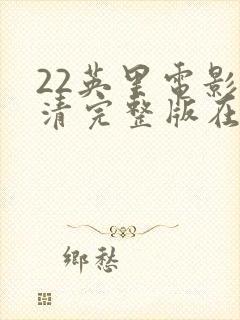 22英里電影
清完整版在
鄉愁